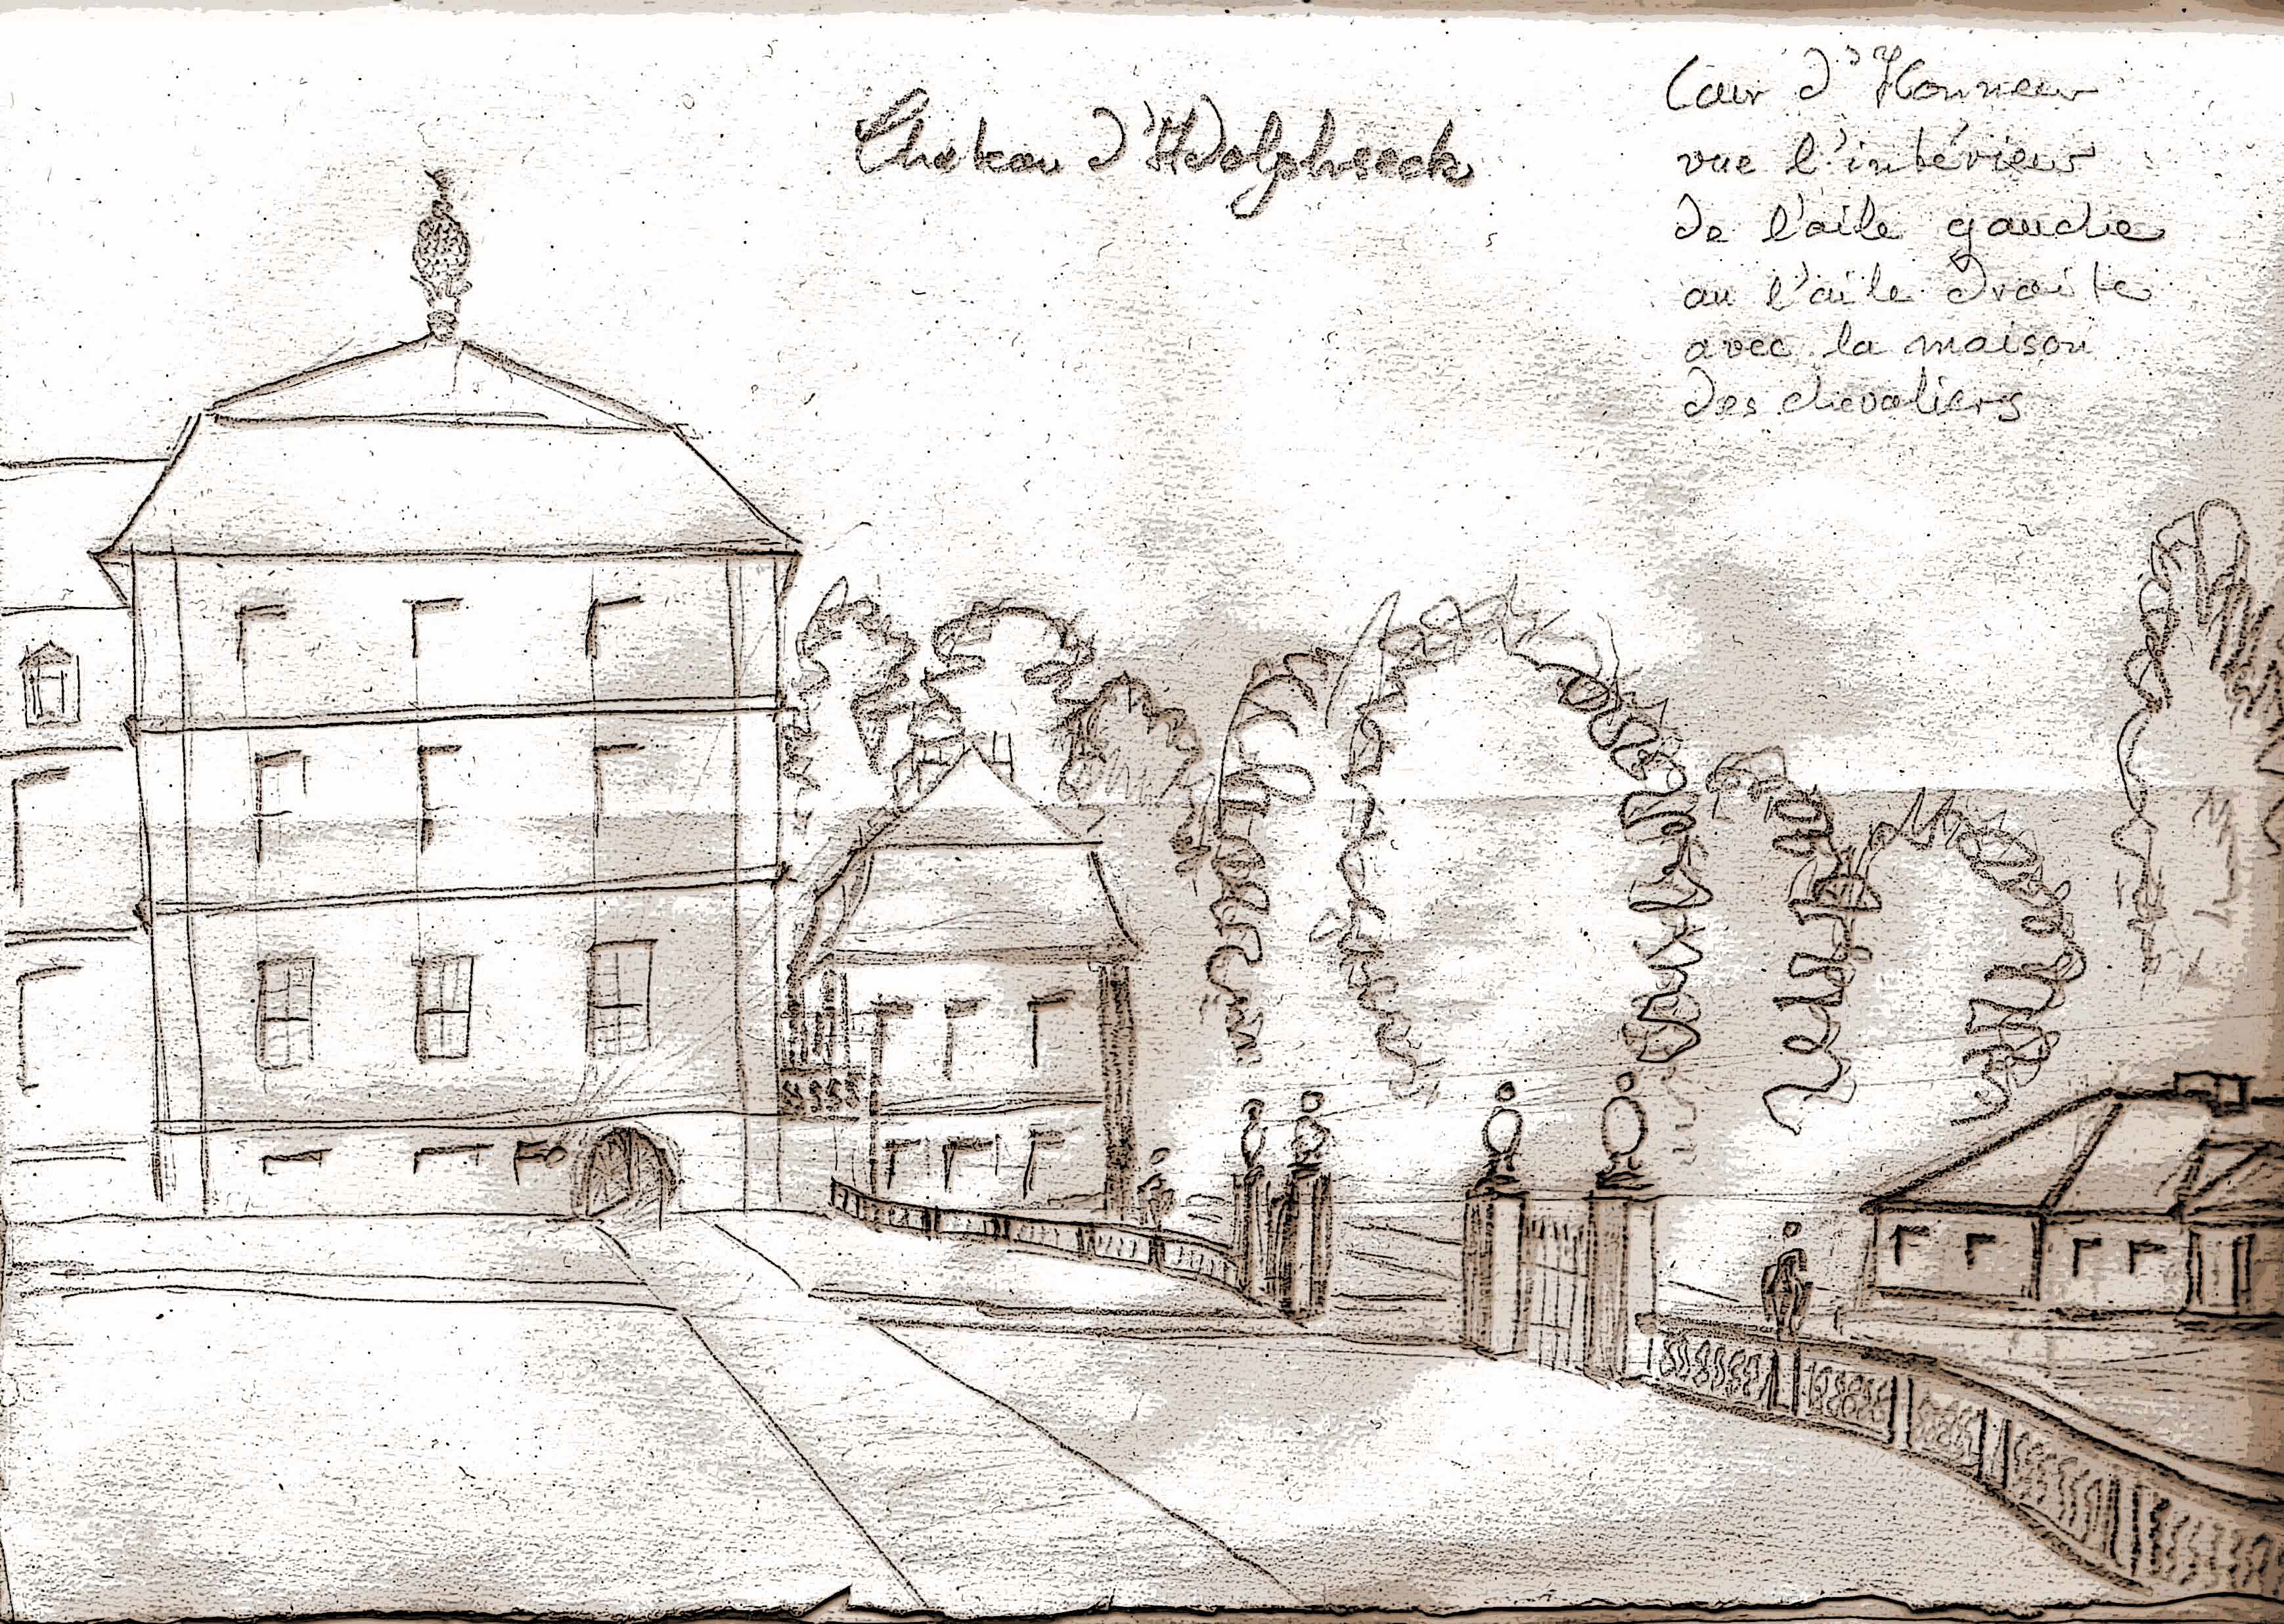 Chateau d'Adolphseck
Cour d'Honneur
vue l'intérieur
de l'aile gauche
au l'aile droite
avec la maison
des chevaliers